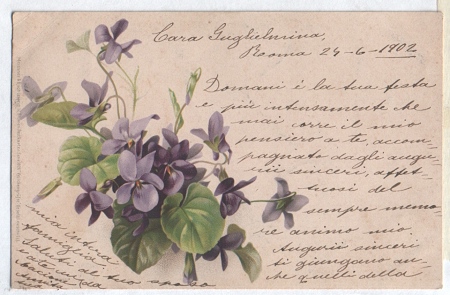 Cara Guglielmina,
Rooma 24-6-1902
Domani è la tua festa
e più intensamente che
mai corre il mio
pensiero a te, accom-
pagnato dagli augu-
rii sinceri, affet-
tuosi del
sempre memo-
re animo mio
Augurii sinceri
ti giungano an-
che quelli della
mia intera
famiglia.
Saluti al tuo sposo